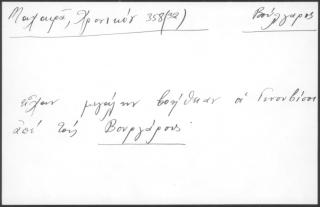 Μαχαιρᾶ, Χρονικόν 358(32) Βούλγαρος
εἶχαν μεγάλην βοήθειαν οἱ Γενουβῖσοι
ἀπὲ τοὺς Βουργάρους